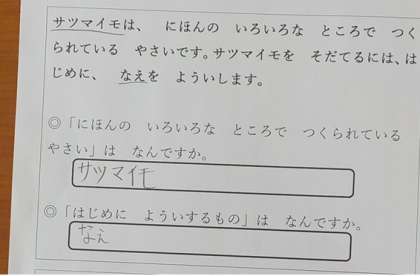 サツマイモは、 にほんの いろいろな ところで つく
られている やさいです。サツマイモを そだてるには、は
じめに、 なえを よういします。
◎「にほんの いろいろな ところで つくられている
やさい」は なんですか。
サツマイモ
◎「はじめに よういするもの」は なんですか。
なえ